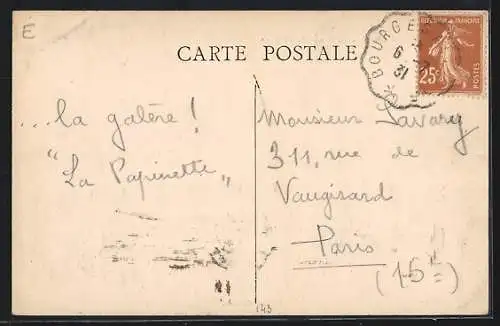 E
CARTE POSTALE
BOURGE
6
31
REPUBLIQUE FRANÇAISE
25c
POSTES
... la galère !
"La Papinette"
Monsieur Savary
311, rue de
Vaugirard
Paris
(15e)
143